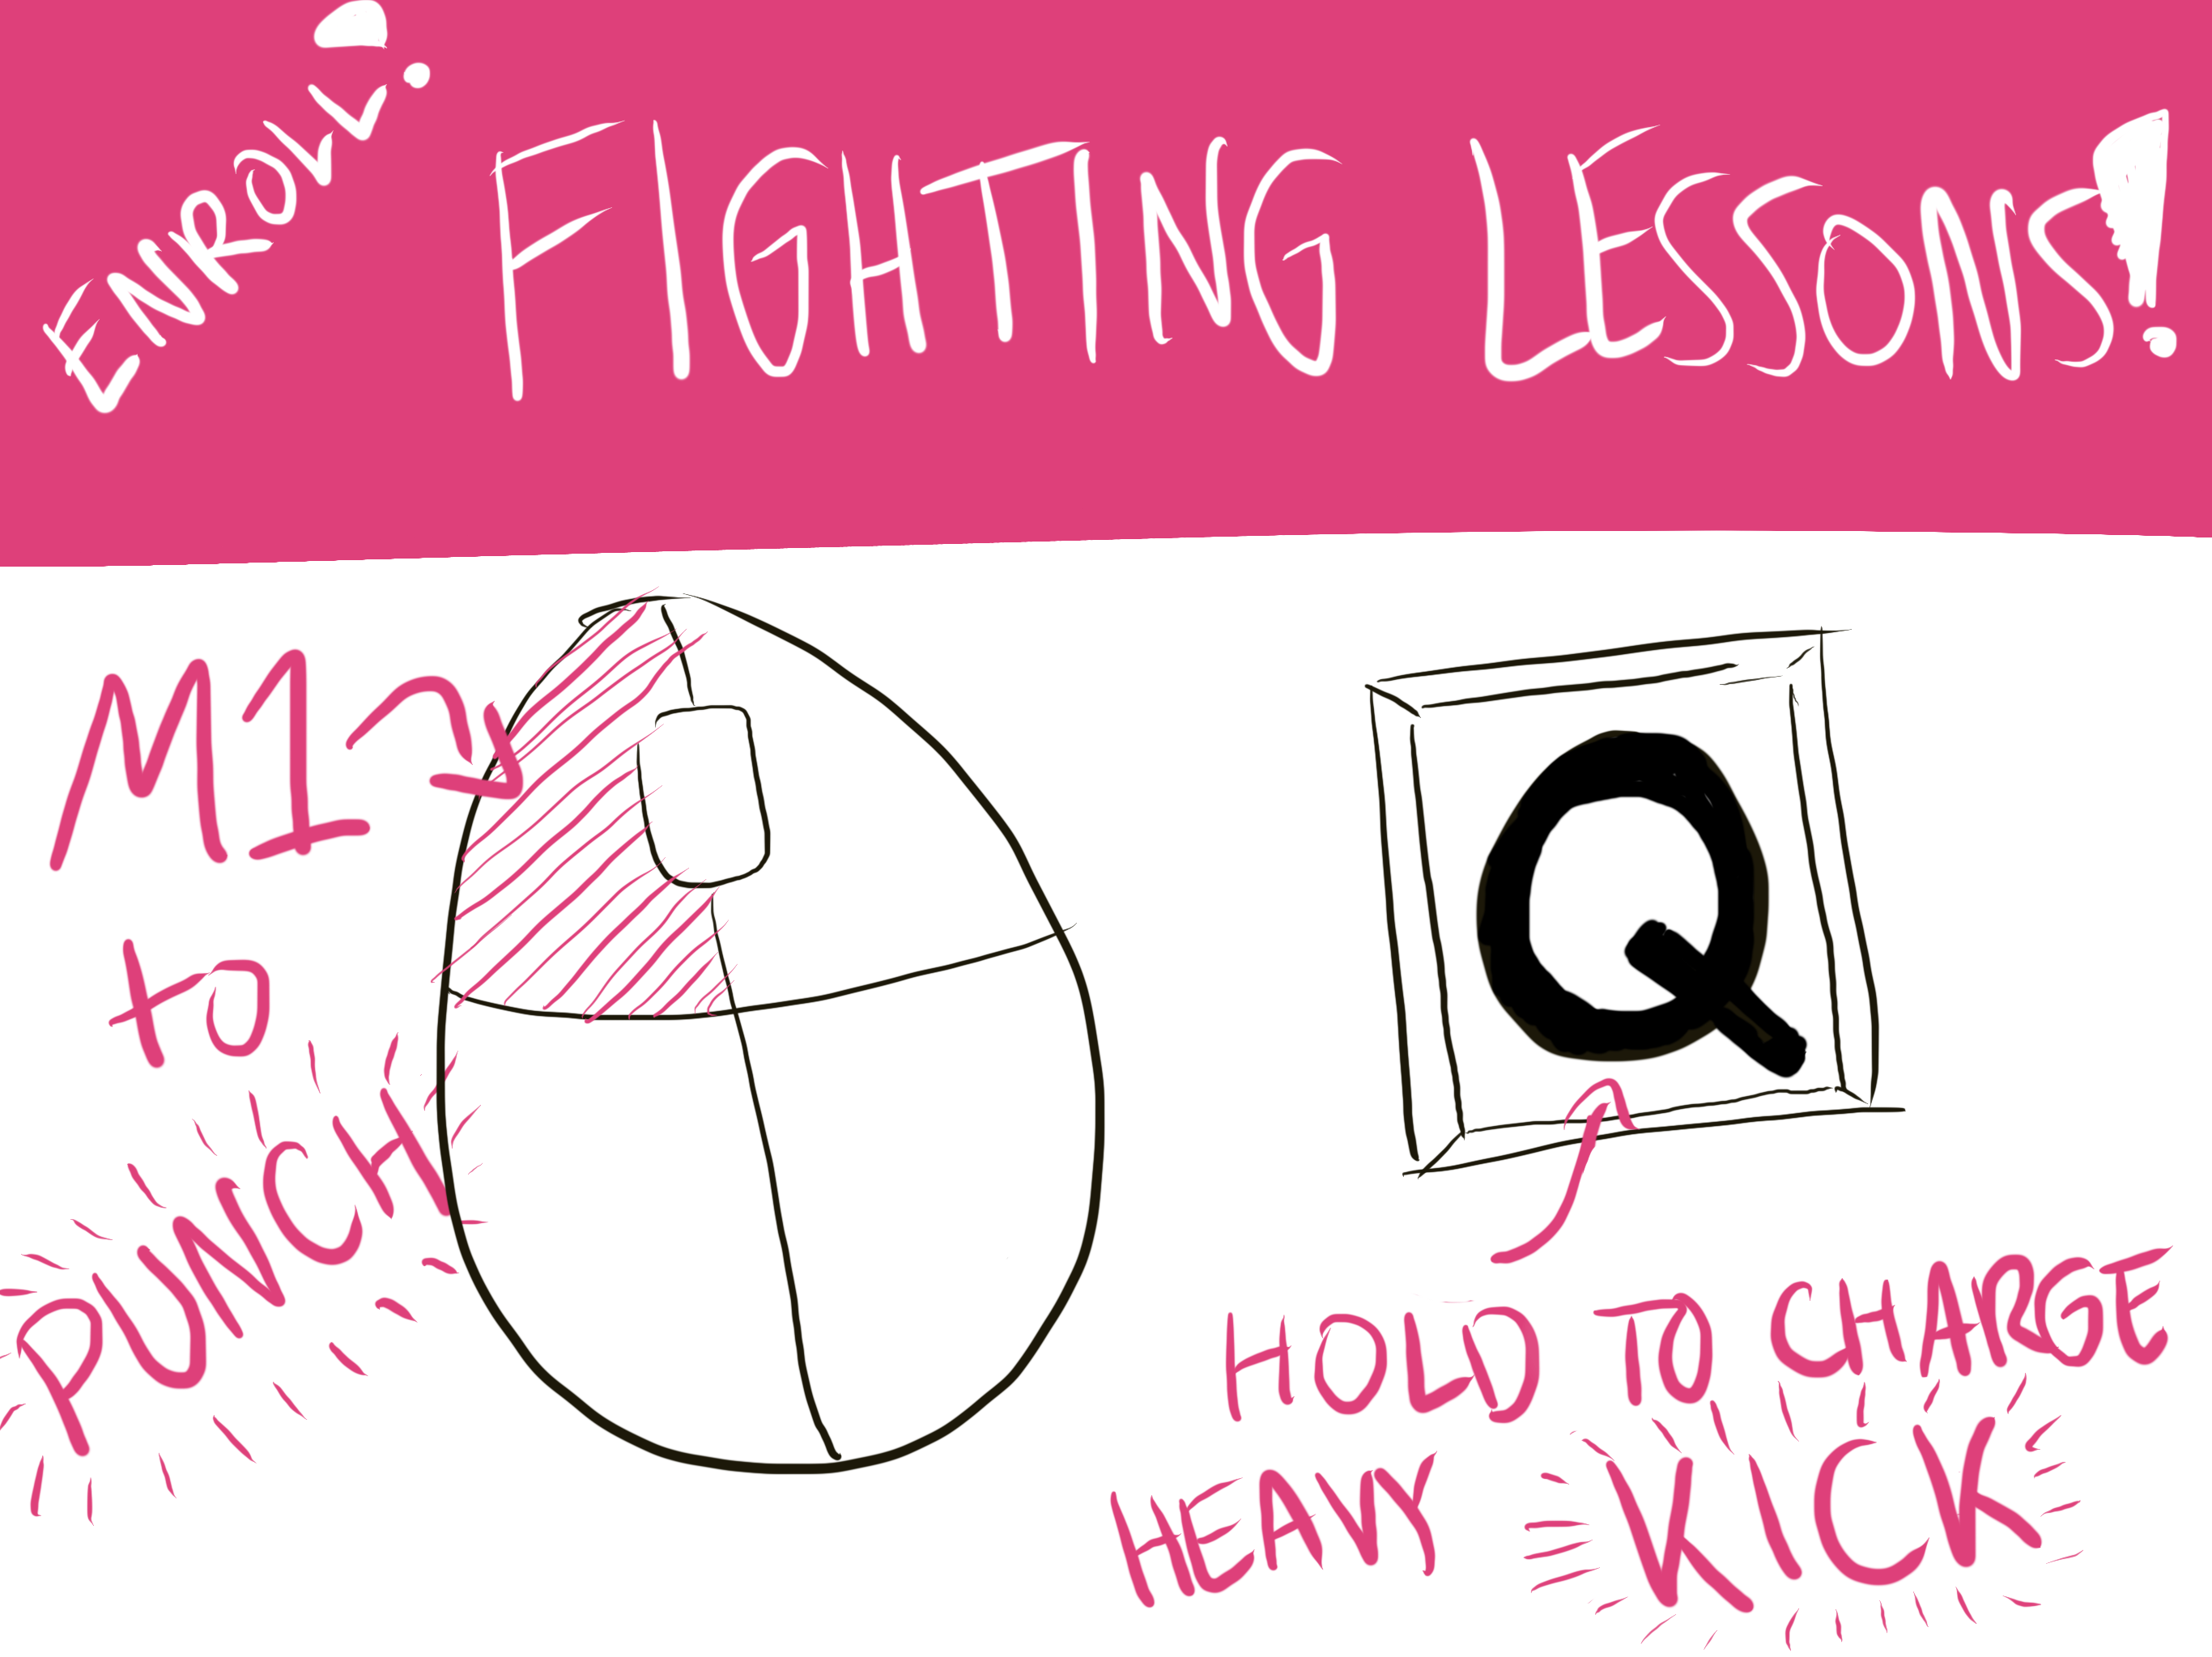 ENROLL!
FIGHTING LESSONS!
M1
to
PUNCH
Q
HOLD TO CHARGE
HEAVY KICK